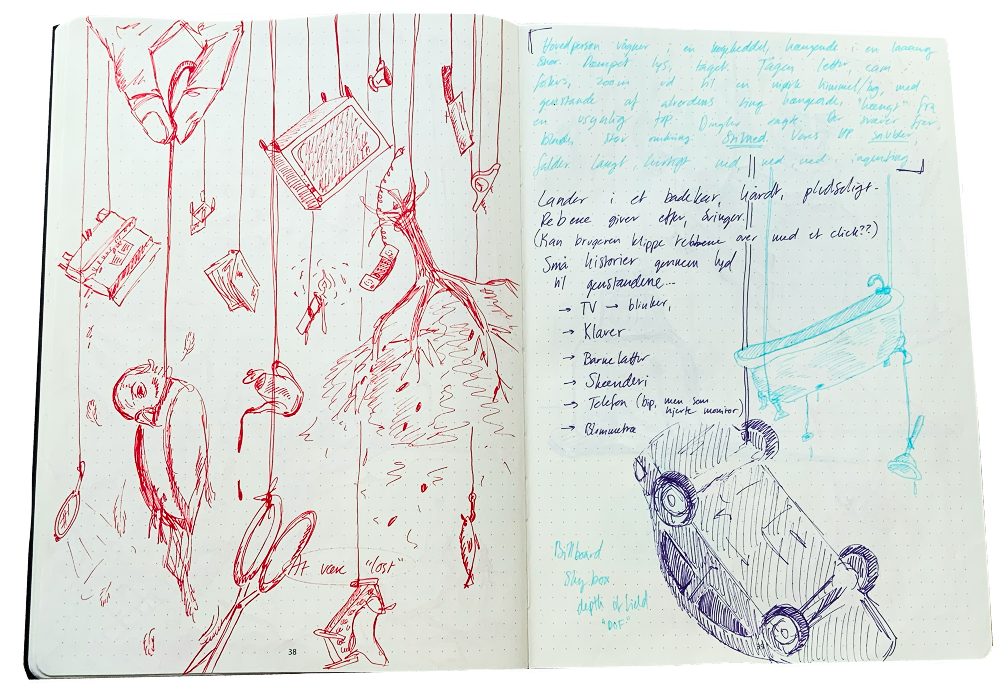 At være "lost"
38
Hovedperson vågner i en , hængende i en
snor. Dæmpet lys, tåget. Tågen letter, cam
fokus, zoom ud til en mørk himmel/ , med
genstande af alverdens ting hængende, "hængt" fra
en usynlig top. Dingler sagte. Der svarer fra
blinde, stor omkring. Stilhed. Vores HP
falder langt hurtigt ned, ned, ned... ingenting
Lander i et badekar, hårdt, pludseligt.
Rebene giver efter, svinger.
(Kan brugeren klippe rebbene over med et click??)
Små historier gennem lyd
til genstandene...
→ TV → blinker,
→ Klaver
→ Barnelatter
→ Skænderi
→ Telefon (bip, men som
hjerte monitor)
→ Blommetræ
Billboard
Sky box
depth of field
"DOF"
39